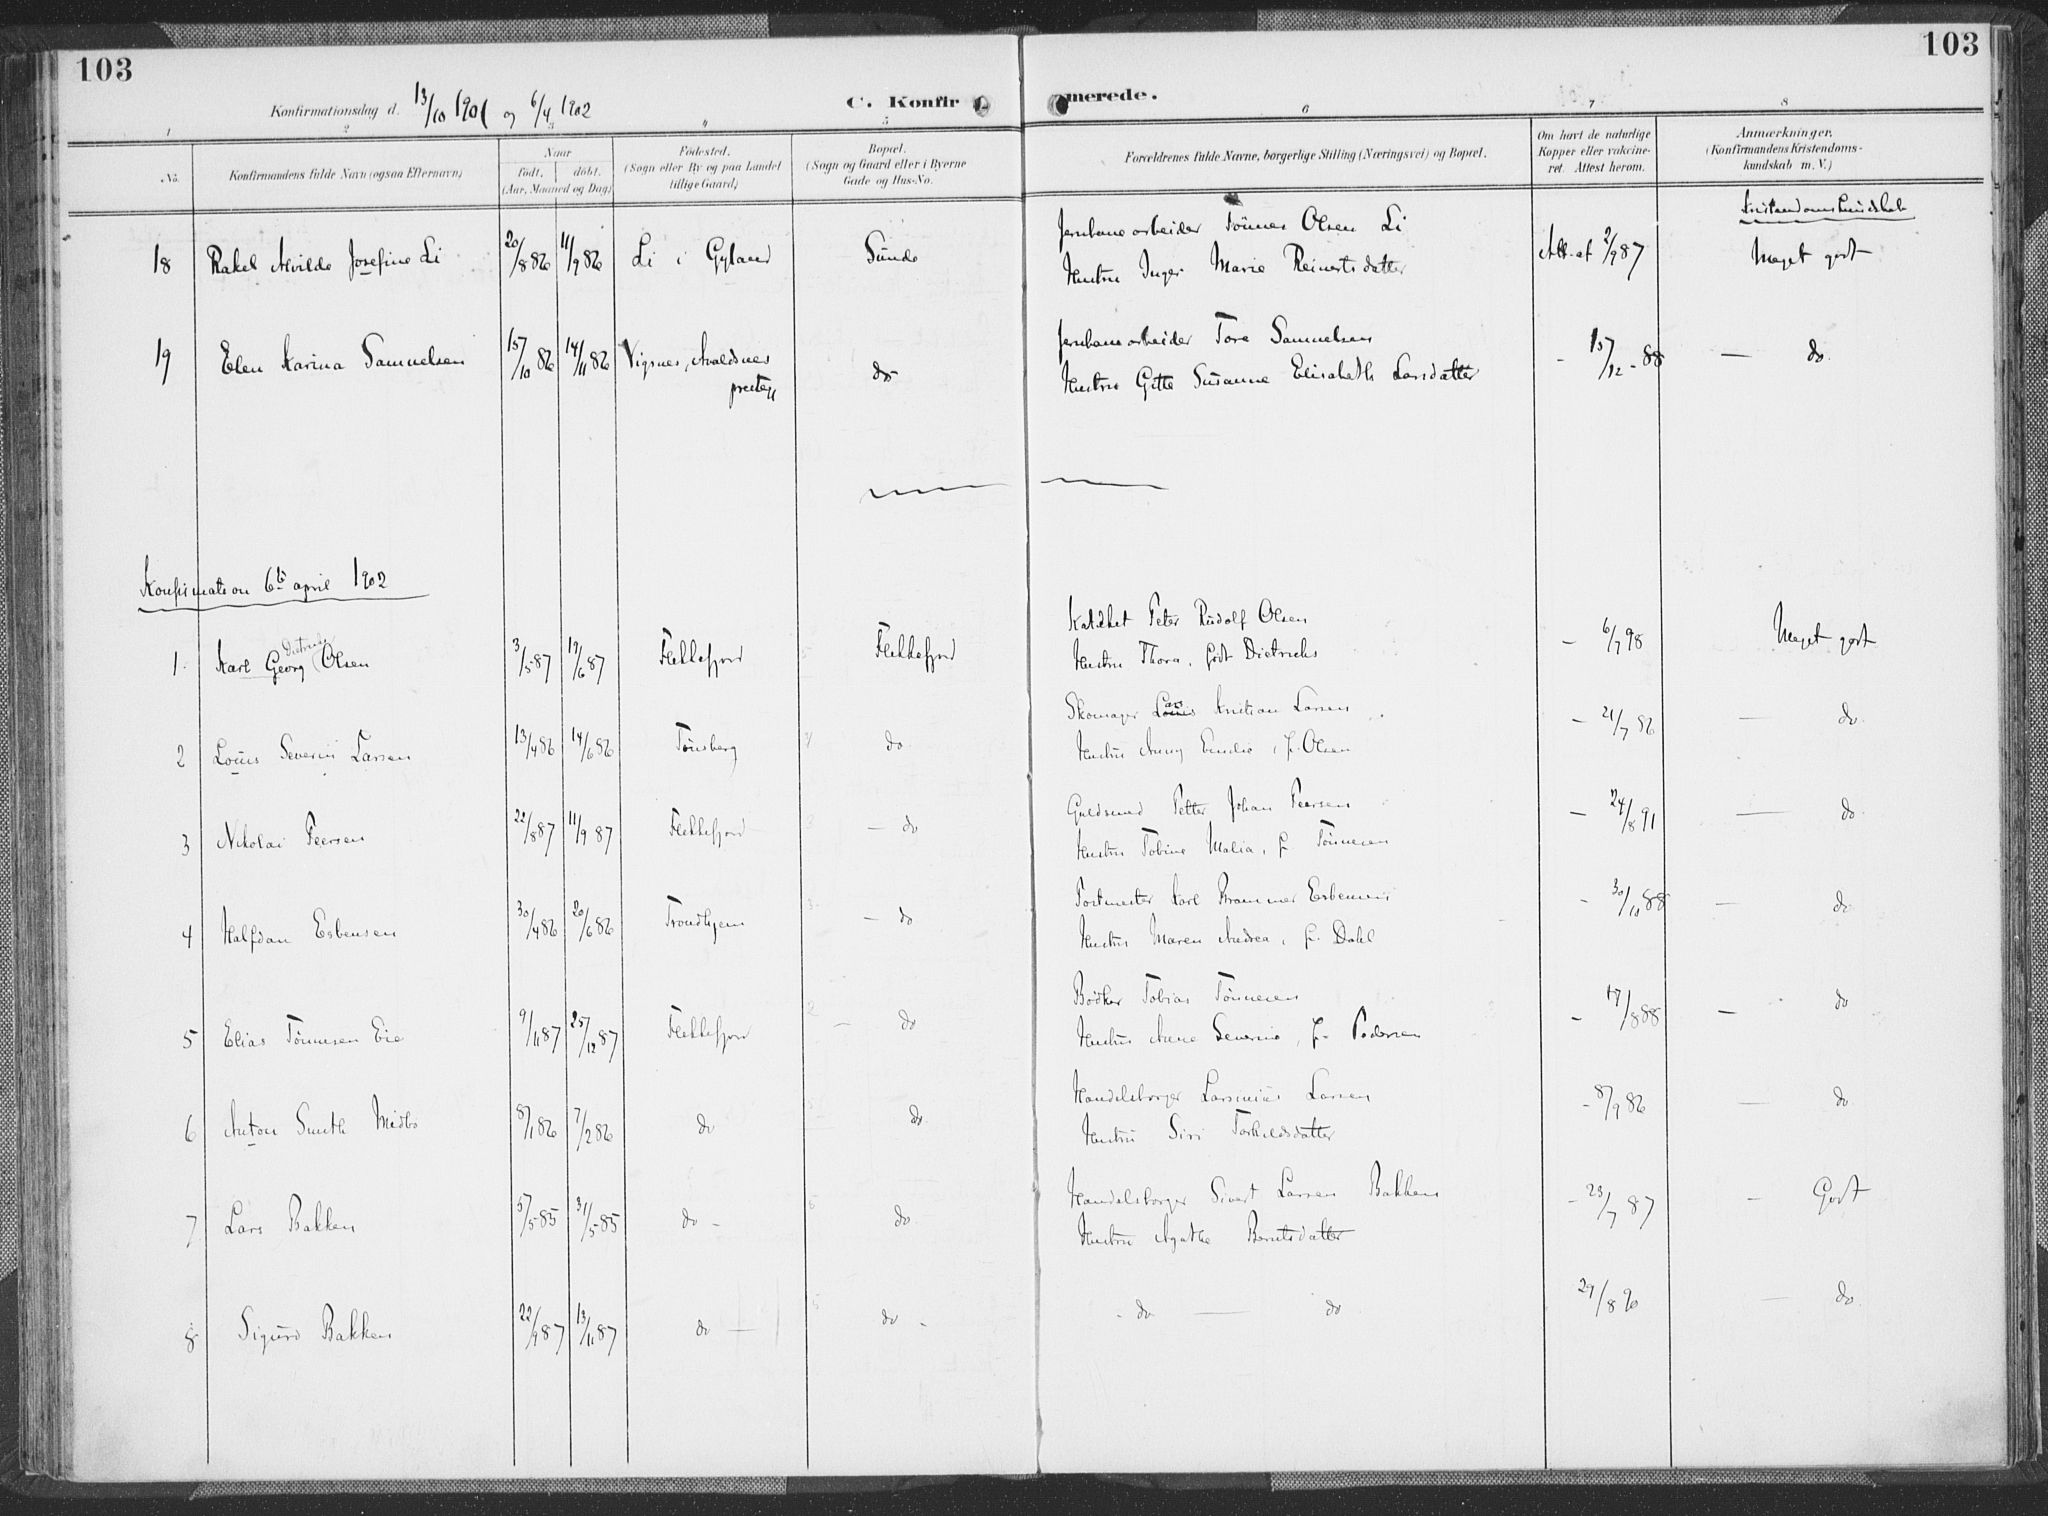 103
103
Konfirmationsdag d. 13/10 1901 og 6/4 1902
C. Konfirmerede.
1 2 3 4 5 6 7 8
No.
Konfirmandens fulde Navn (ogsaa Efternavn)
Naar
født. døbt.
(Aar, Maaned og Dag)
Fødested.
(Sogn eller By og paa Landet
tillige Gaard)
Bopæl.
(Sogn og Gaard eller i Byerne
Gade og Hus-No.
Forældrenes fulde Navne, borgerlige Stilling (Næringsvei) og Bopæl.
Om havt de naturlige
Kopper eller vakcine-
ret. Attest herom.
Anmærkninger.
(Konfirmandens Kristendoms-
kundskab m. V.)
Kristendomskundskab
Jernbanearbeider Tönnes Olsen Li
18 Rakel Alvilde Josefine Li 20/8 86 11/9 86 Li i Gyland Sunde Att. af 2/9 87 Meget godt
Hustru Inger Marie Reinertsdatter
Jernbanearbeider Tore Samuelsen
19 Elen Karina Samuelsen 15/10 86 14/11 86 Vigsnes, Avaldsnes do - 15/12 - 88 — do.
prestegj
Hustru Gitte Susanne Elisabeth Larsdatter
Konfirmation 6te april 1902
Kateket Peter Rudolf Olsen
Dietrichs
1. Karl Georg Olsen 3/5 87 19/6 87 Flekkefjord Flekkefjord - 6/7 98 Meget godt
Hustru Thora, født Dietrichs
Skomager Lars Kristian Larsen
2 Louis Severin Larsen 13/4 86 14/6 86 Tönsberg do. - 21/7 86 — do.
Hustru Anny Emilie, f. Olsen
Guldsmed Petter Johan Peersen
3 Nikolai Peersen 22/8 87 11/9 87 Flekkefjord - do - 24/8 91 — do.
Hustru Tobine Malia, f. Tönnesen
Postmester Karl Brammer Esbensen
4 Halfdan Esbensen 30/4 86 20/6 86 Trondhjem - do - 30/10 88 — do
Hustru Maren Andrea, f. Dahl
Bødker Tobias Tönnesen
5 Elias Tönnesen Eie 9/11 87 25/12 87 Flekkefjord - do - 17/8 88 — do
Hustru Anne Severine, f. Pedersen
Handelsborger Larsinius Larsen
6 Anton Smith Midbö 8/1 86 7/2 86 do do. - 8/9 86 — do.
Hustru Siri Torkildsdatter
Handelsborger Sivert Larsen Bakken
7 Lars Bakken 5/5 85 31/5 85 do - do. - 23/7 87 - Godt
Hustru Agathe Berntsdatter
8 Sigurd Bakken 22/9 87 13/11 87 do — do - - do — do 29/8 90 — do.